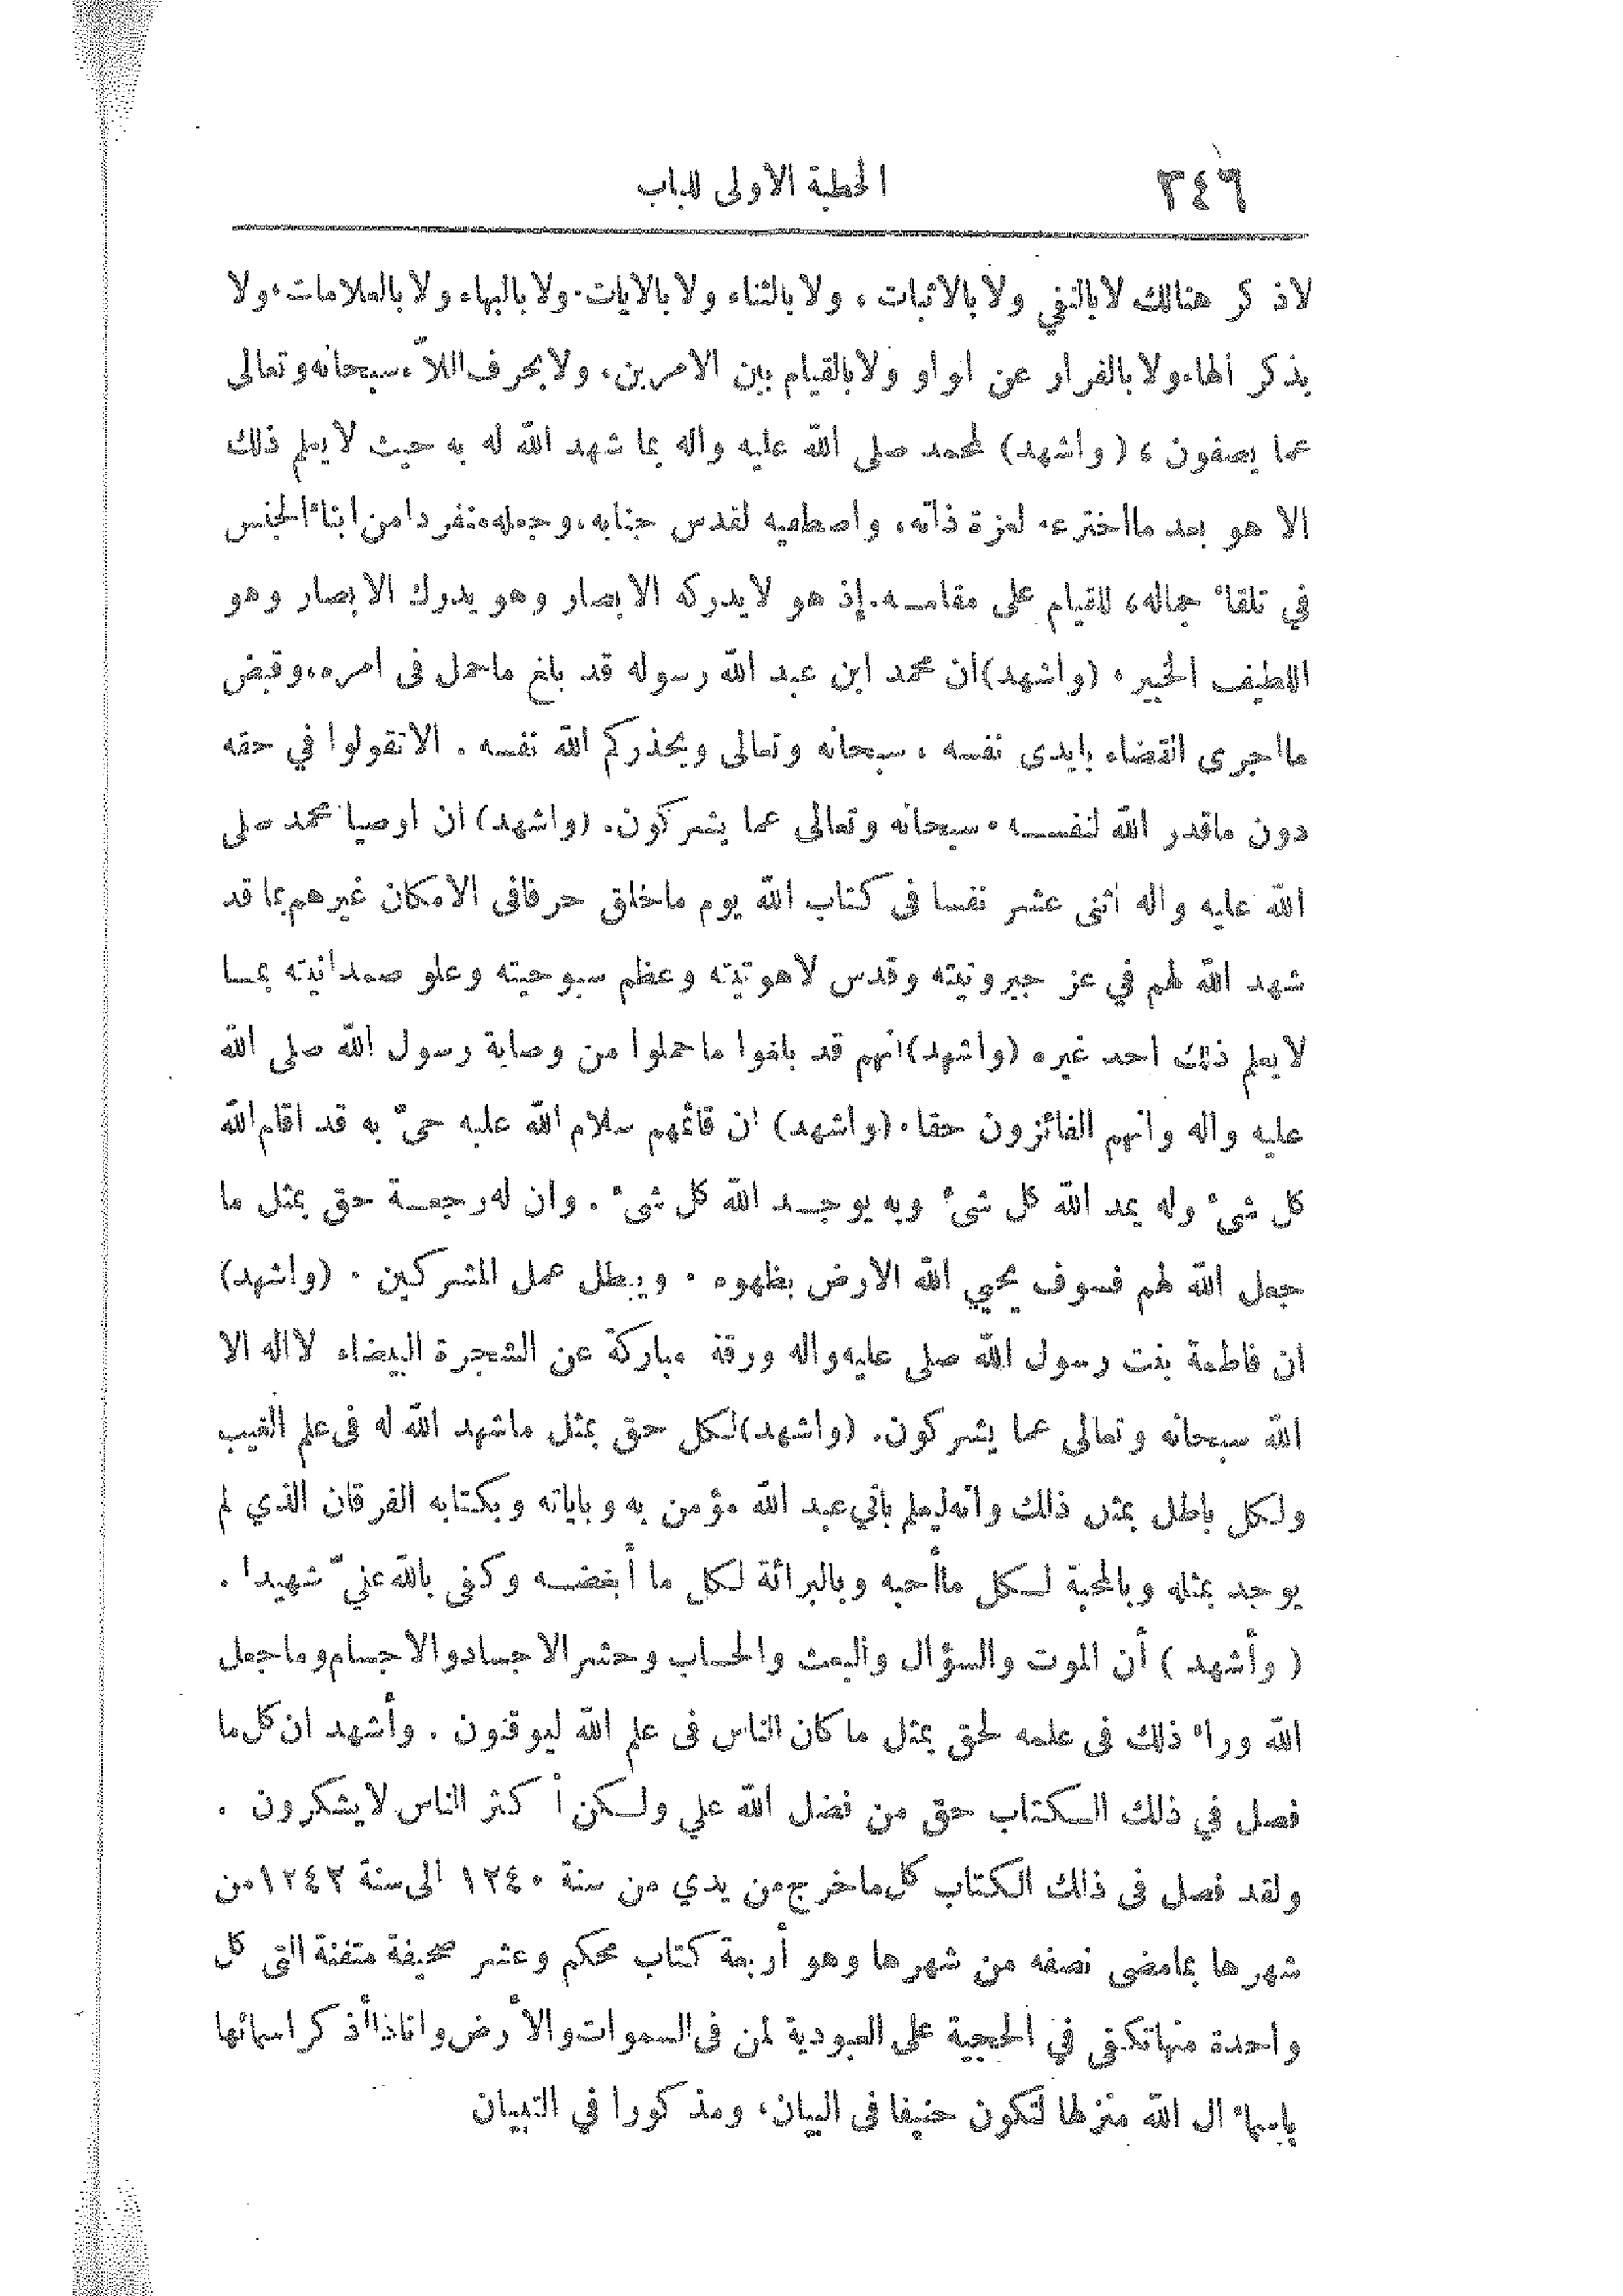 ٣٤٦
الخطبة الاولى للباب
لاذكر هنالك لابالنفي ولا بالاثبات ، ولا بالثناء ولا بالايات، ولا بالبهاء، ولا بالعلامات، ولا
بذكر الهاء، ولا بالفرار عن الواو ولا بالقيام بين الامرين، ولا بحرف اللاّء سبحانه وتعالى
عما يصفون ، (واشهد) لمحمد صلى الله عليه واله بما شهد الله له به حيث لا يعلم ذلك
الا هو بعد ما اخترعه لعزة ذاته، واصطفيه لقدس جنابه، وجعله متفردا من ابناء الجنس
في تلقاء جماله، للقيام على مقامـه. إذ هو لا يدركه الابصار وهو يدرك الابصار وهو
اللطيف الخبير، (واشهد) ان محمد ابن عبد الله رسوله قد بلغ ما حمل فى امره، وقبض
ما اجرى القضاء بايدى نفسه ، سبحانه وتعالى ويحذركم الله نفسه . الا تقولوا في حقه
دون ما قدر الله لنفسـه ، سبحانه وتعالى عما يشركون. (واشهد) ان اوصيا محمد صلى
الله عليه واله اثنى عشر نفسا فى كتاب الله يوم ما خلق حرفا فى الامكان غيرهم بما قد
شهد الله لهم في عز جبروتيته وقدس لاهوتيته وعظم سبوحيته وعلو صمدانيته بمـا
لا يعلم ذلك احد غيره (واشهد) انهم قد بلغوا ما حملوا من وصاية رسول الله صلى الله
عليه واله وانهم الفائزون حقا. (واشهد) ان قائمهم سلام الله عليه حىّ به قد اقام الله
كل شىء وله يمد الله كل شىء وبه يوجـد الله كل شىء . وان له رجعـة حق بمثل ما
جعل الله لهم فسوف يحيي الله الارض بظهوه . ويبطل عمل المشركين . (واشهد)
ان فاطمة بنت رسول الله صلى عليه واله ورقة مباركة عن الشجرة البيضاء لا اله الا
الله سبحانه وتعالى عما يشركون. (واشهد) لكل حق بمثل ما شهد الله له فى علم الغيب
ولكل باطل بمثل ذلك وانه ليعلم باني عبد الله مؤمن به وباياته وبكتابه الفرقان الذي لم
يوجد بمثله وبالمحبة لـكل ما أحبه وبالبرائة لـكل ما أبغضـه وكفى بالله عنيّ شهيدا .
( وأشهد ) أن الموت والسؤال والبعث والحساب وحشر الاجساد والاجسام وما جعل
الله وراء ذلك فى علمه لحق بمثل ما كان الناس فى علم الله ليوقنون . وأشهد ان كل ما
فصل في ذلك الـكتاب حق من فضل الله علي ولـكن أكثر الناس لا يشكرون .
ولقد فصل فى ذلك الكتاب كل ما خرج من يدي من سنة ١٢٤٠ الى سنة ١٢٤٢ من
شهرها بما مضى نصفه من شهرها وهو أربعة كتاب محكم وعشر صحيفة متقنة التى كل
واحدة منها تكفى في الحجية على العبودية لمن فى السموات والأرض وانا ذا أذكر اسمائها
باسماء ال الله منزلها لتكون حنيفا فى البيان، ومذكورا في التبيان